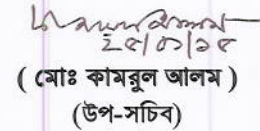 ২৫/০১/১৫
( মোঃ কামরুল আলম )
(উপ-সচিব)